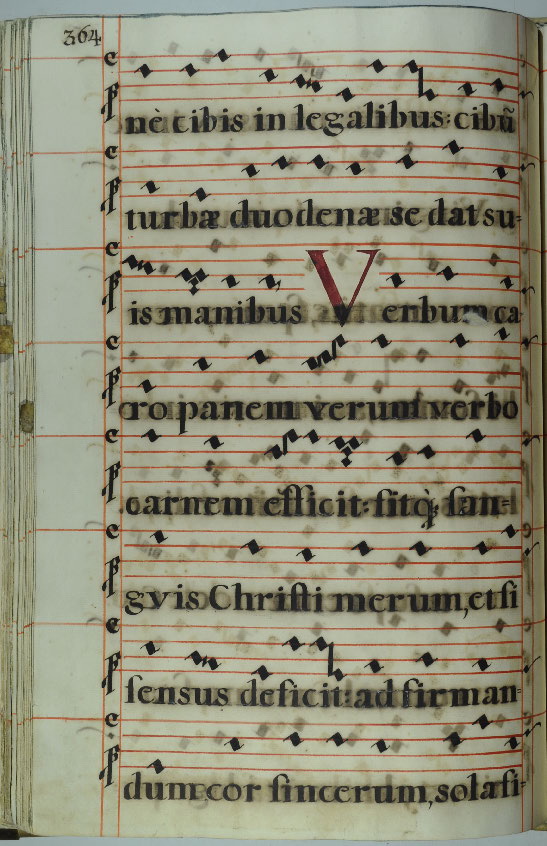 364
nè cibis in legalibus: cibũ
turbæ duodenæ se dat su-
is manibus Verbum ca
ro panem verum verbo
carnem efficit: sitq̀; san-
gvis Christi merum, et si
sensus deficit: ad firman-
dum cor sincerum, sola fi-